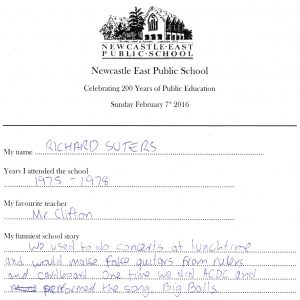 NEWCASTLE·EAST
PUBLIC·SCHOOL
Newcastle East Public School
Celebrating 200 Years of Public Education
Sunday February 7th 2016
My name RICHARD SUTERS
Years I attended the school
1975 - 1978
My favourite teacher
Mr Clifton
My funniest school story
We used to do concerts at lunchtime
and would make fake guitars from rulers
and cardboard. One time we did ACDC and
performed the song, Big Balls